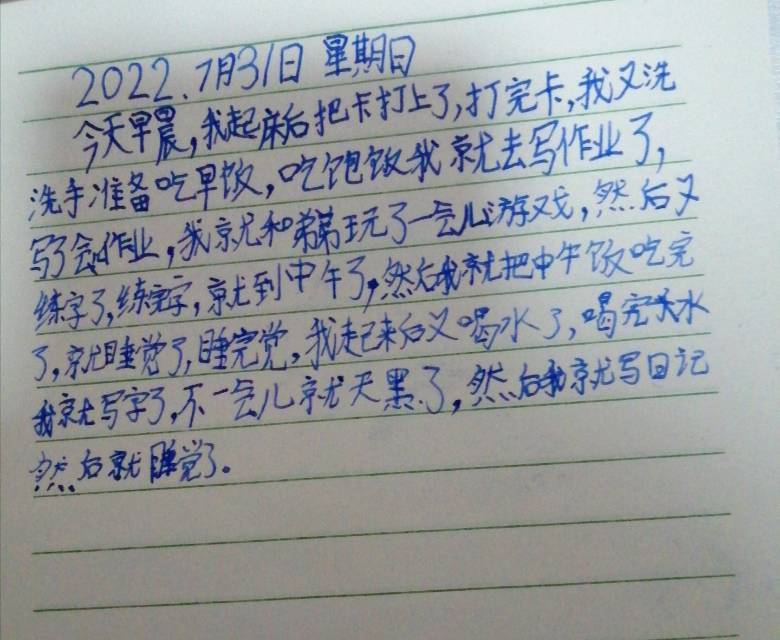 2022.7月31日 星期日
今天早晨,我起床后把卡打上了,打完卡,我又洗
洗手准备吃早饭,吃饱饭我就去写作业了,
写了会作业,我就和弟弟玩了一会儿游戏,然后又
练字了,练完字,就到中午了,然后我就把中午饭吃完
了,就睡觉了,睡完觉,我起来后又喝水了,喝完水
我就写字了,不一会儿就天黑了,然后我就写日记
然后就睡觉了。